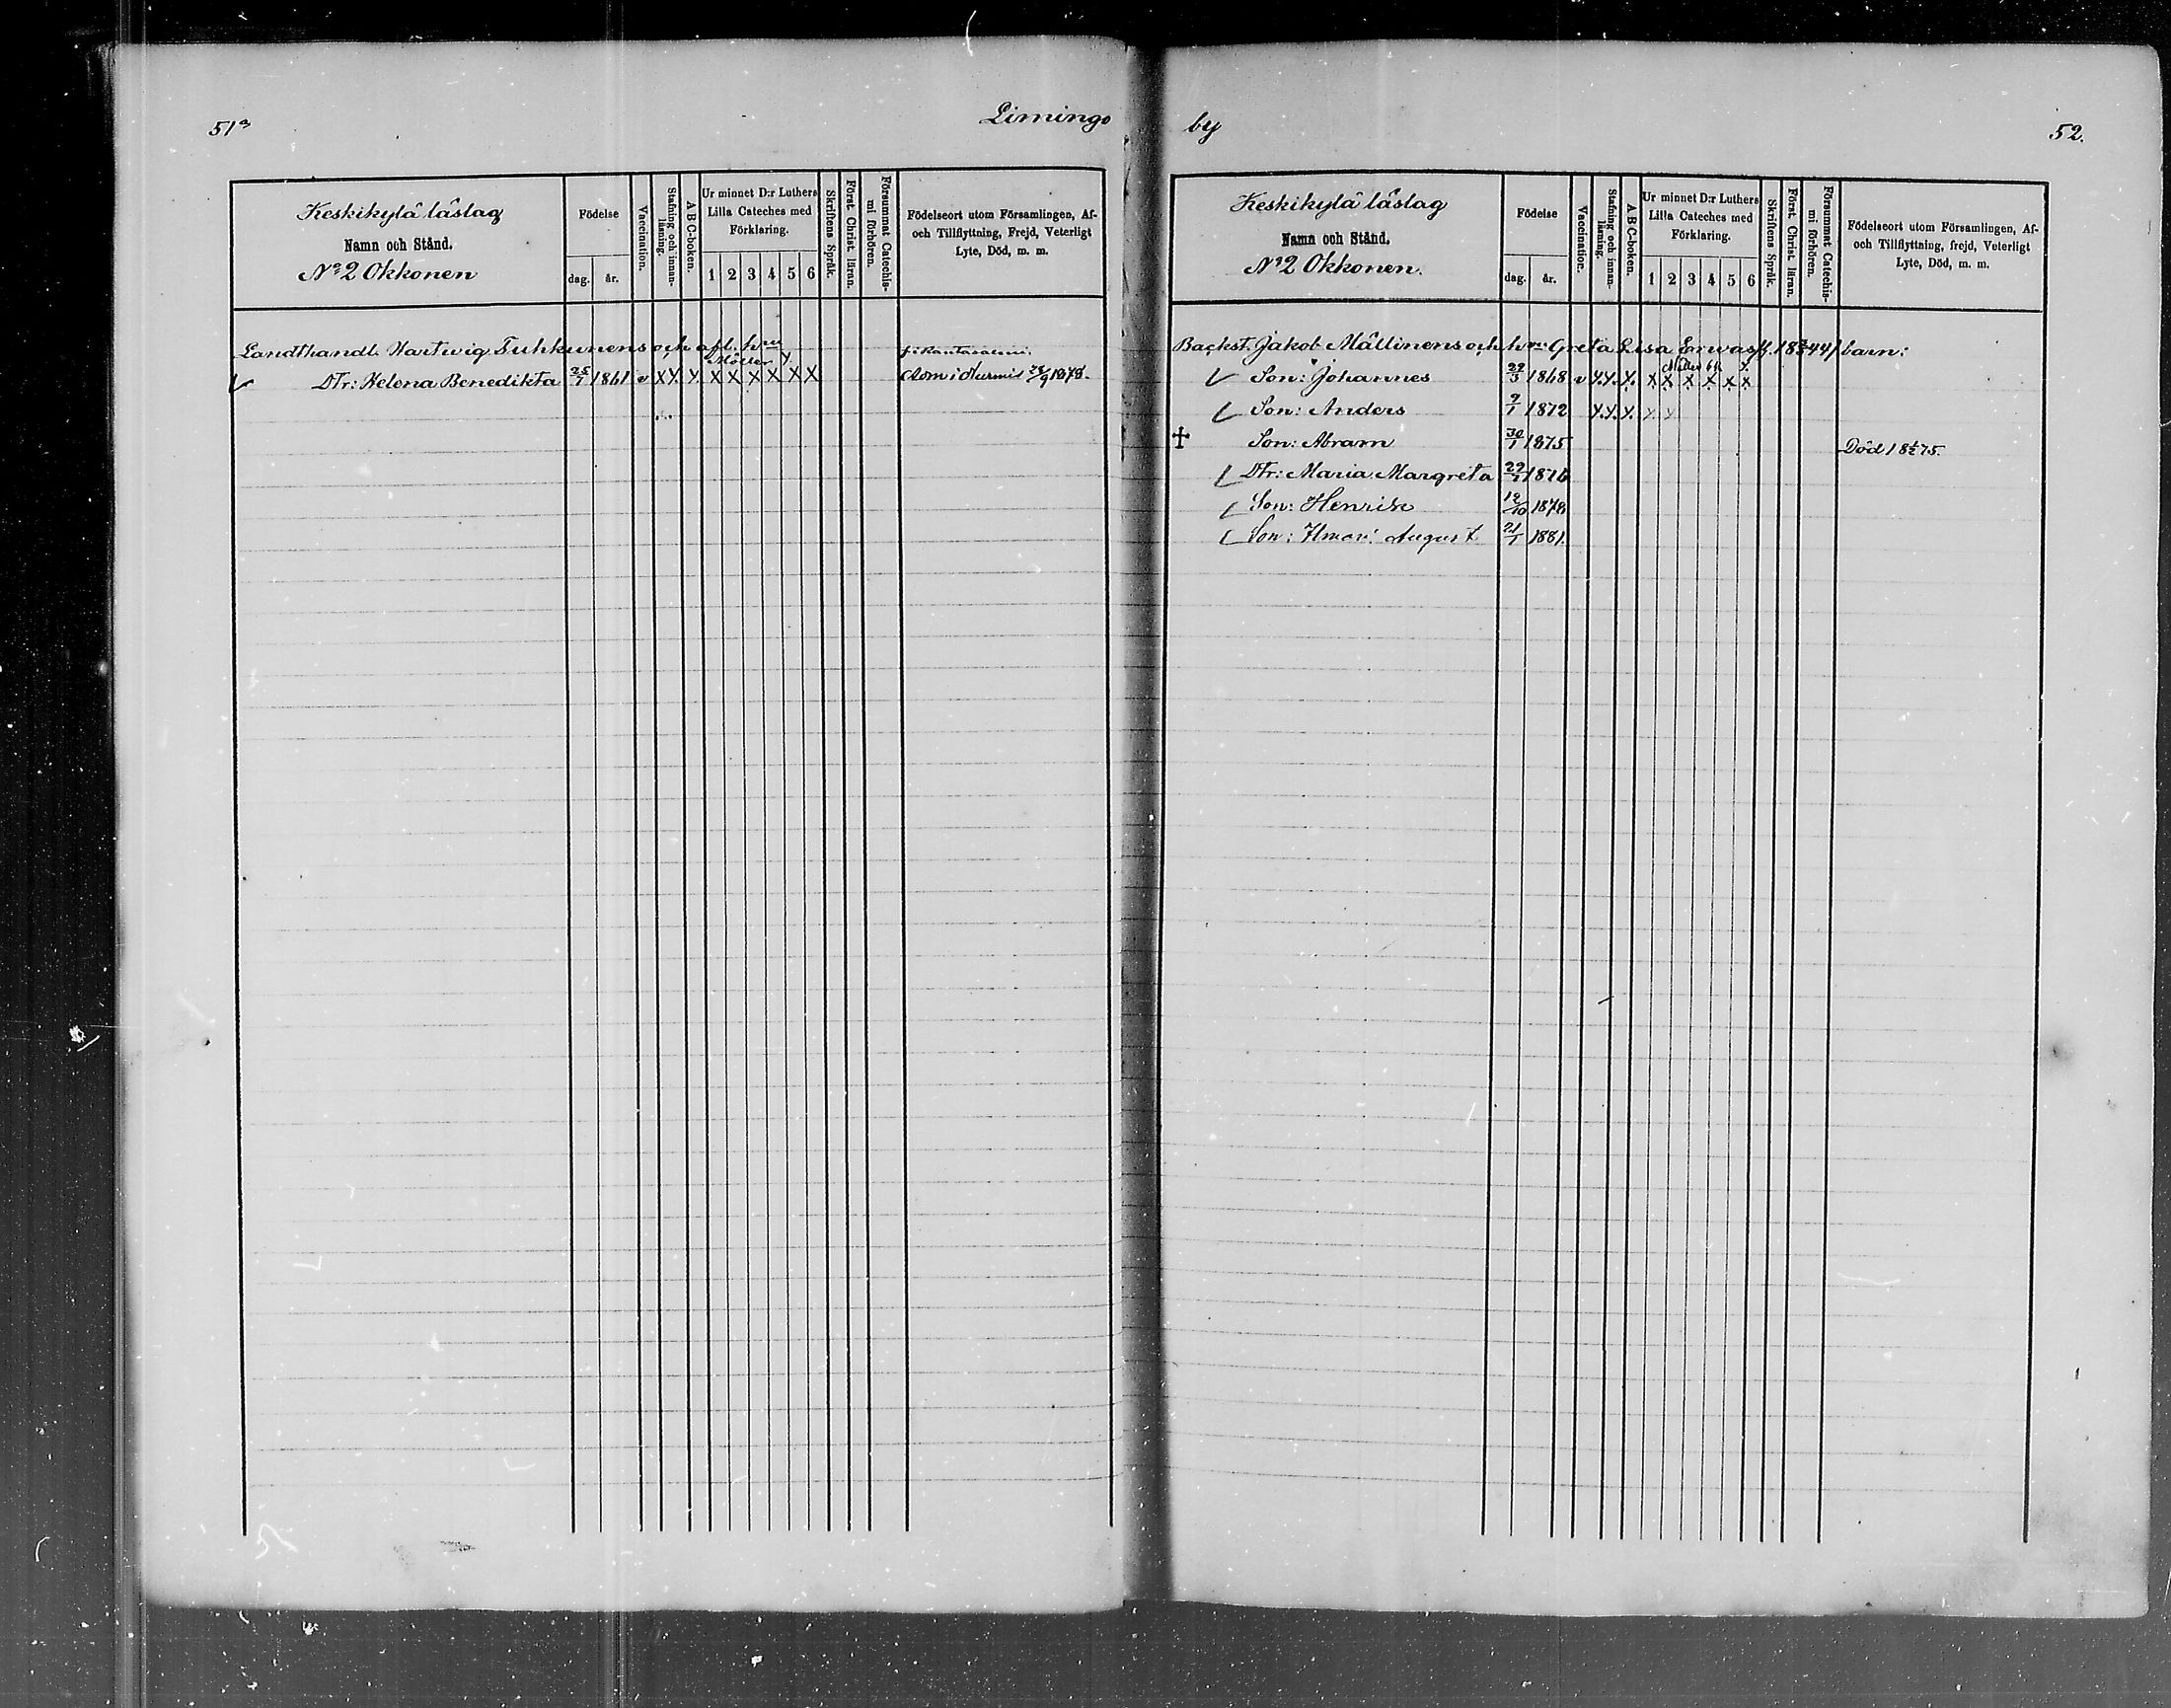 51a
Limingo
Keskikylä läslag
Namn och Stånd.
No 2 Okkonen
Födelse
dag. år.
Vaccination.
Stafning och innan-läsning.
A B C-boken.
Ur minnet D:r Luthers
Lilla Cateches med
Förklaring.
1 2 3 4 5 6
Skriftens Språk.
Först. Christ. läran.
Försummat Catechis-mi förhören.
Födelseort utom Församlingen, Af-
och Tillflyttning, Frejd, Veterligt
Lyte, Död, m. m.
Landthandl. Hartwig Tuhkunens och afl. hru
Möller y f. i Rantasalmi.
Dtr: Helena Benedikta 25/7 1861 v x y. y. x x x x x x kom i Nurmis 1878.
by
52.
Keskikylä läslag
Namn och Stånd.
No 2 Okkonen.
Födelse
dag. år.
Vaccination.
Stafning och innan-läsning.
A B C-boken.
Ur minnet D:r Luthers
Lilla Cateches med
Förklaring.
1 2 3 4 5 6
Skriftens Språk.
Först. Christ. läran.
Försummat Catechis-mi förhören.
Födelseort utom Församlingen, Af-
och Tillflyttning, frejd, Veterligt
Lyte, Död, m. m.
Backst. Jakob Mällinens och hru Greta Lisa Erwast f. 44 barn:
Son: Johannes 29/3 1868 v y. y. y. x x x x x x
Son: Anders 9/1 1872 y. y. y. y y
Son: Abram 30/1 1875 Död 18 75.
Dtr: Maria Margreta 1876
Son: Henrik 12/10 1878
Son: Ilmari August 21/1 1881.